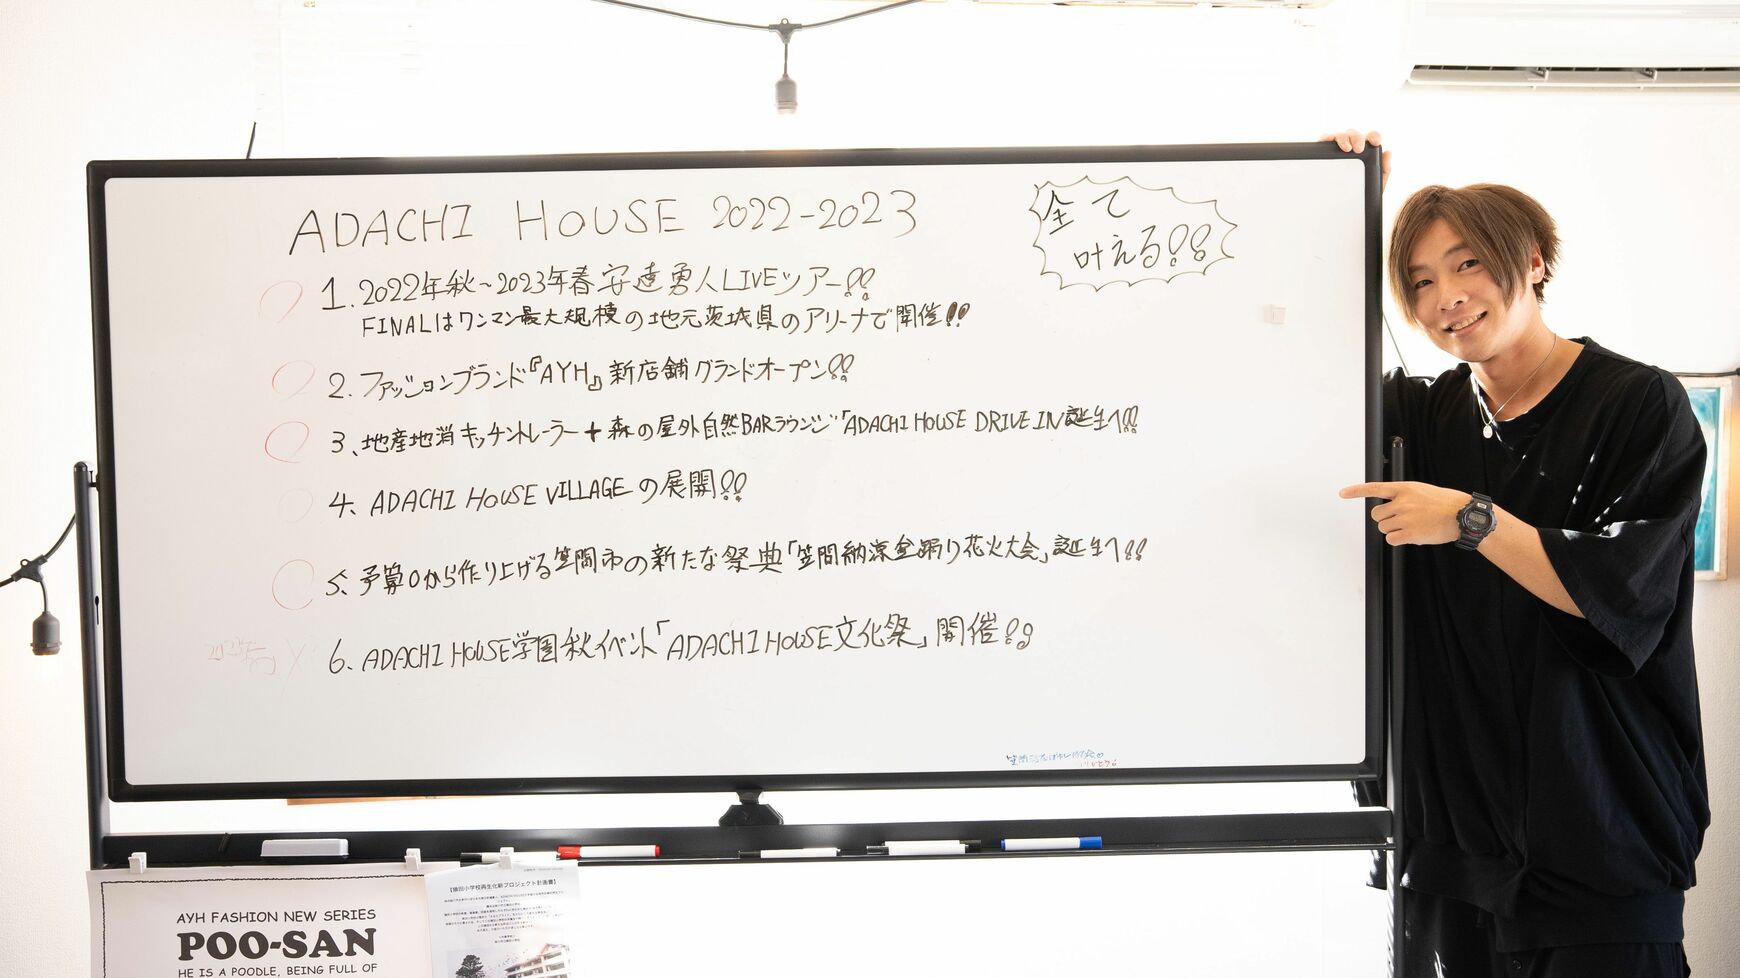 ADACHI HOUSE 2022-2023
全て
叶える!!
1. 2022年秋~2023年春安達勇人LIVEツアー!!
FINALはワンマン最大規模の地元茨城県のアリーナで開催!!
2. ファッションブランド『AYH』新店舗グランドオープン!!
3、地産地消キッチントレーラー+森の屋外自然BARラウンジ「ADACHI HOUSE DRIVE IN誕生へ!!
4、ADACHI HOUSE VILLAGEの展開!!
5、予算0から作り上げる笠間市の新たな祭典「笠間納涼盆踊り花火大会」誕生へ!!
6、ADACHI HOUSE学園秋イベント「ADACHI HOUSE文化祭」開催!!
AYH FASHION NEW SERIES
POO-SAN
HE IS A POODLE, BEING FULL OF